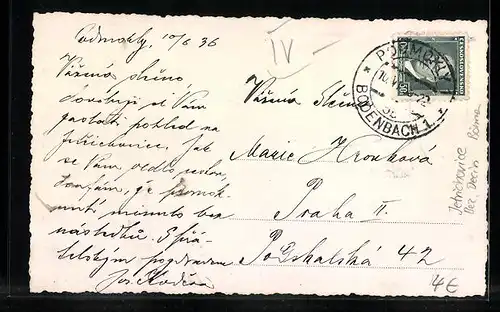 Podmokly, 10/6 36
Vážená slečno
dovoluji si Vám
zaslati pohled na
Jetřichovice. Jak
se Vám vedlo
doufám, že
minulo bez
následků. S přá-
telským pozdravem
Jos.
IV
Vážená Slečna
Marie Hronková
Praha II.
Podskalská 42
PODMOKLY
BODENBACH 1
ČESKOSLOVENSKO
50
Jetřichovice
Bez. Decin
Böhme
4€